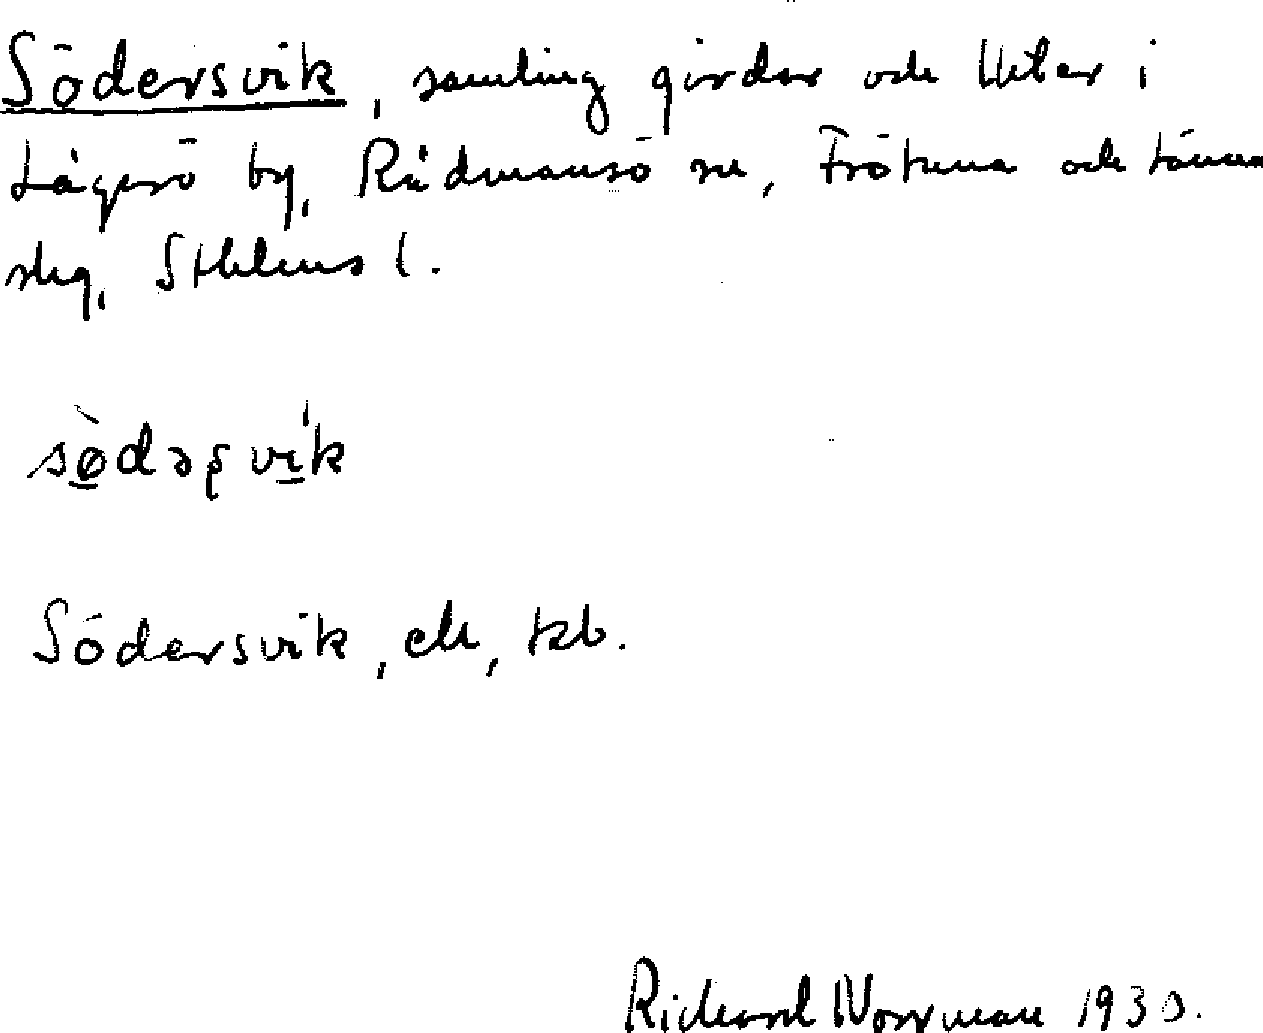 Södersvik, samling gårdar och tomter i
Lågarö by, Rådmansö sn, Frötuna och Länna
slg, Sthlms l.
sø̀dəʂvík
Södersvik, ek, kb.
Richard Norrman 1930.